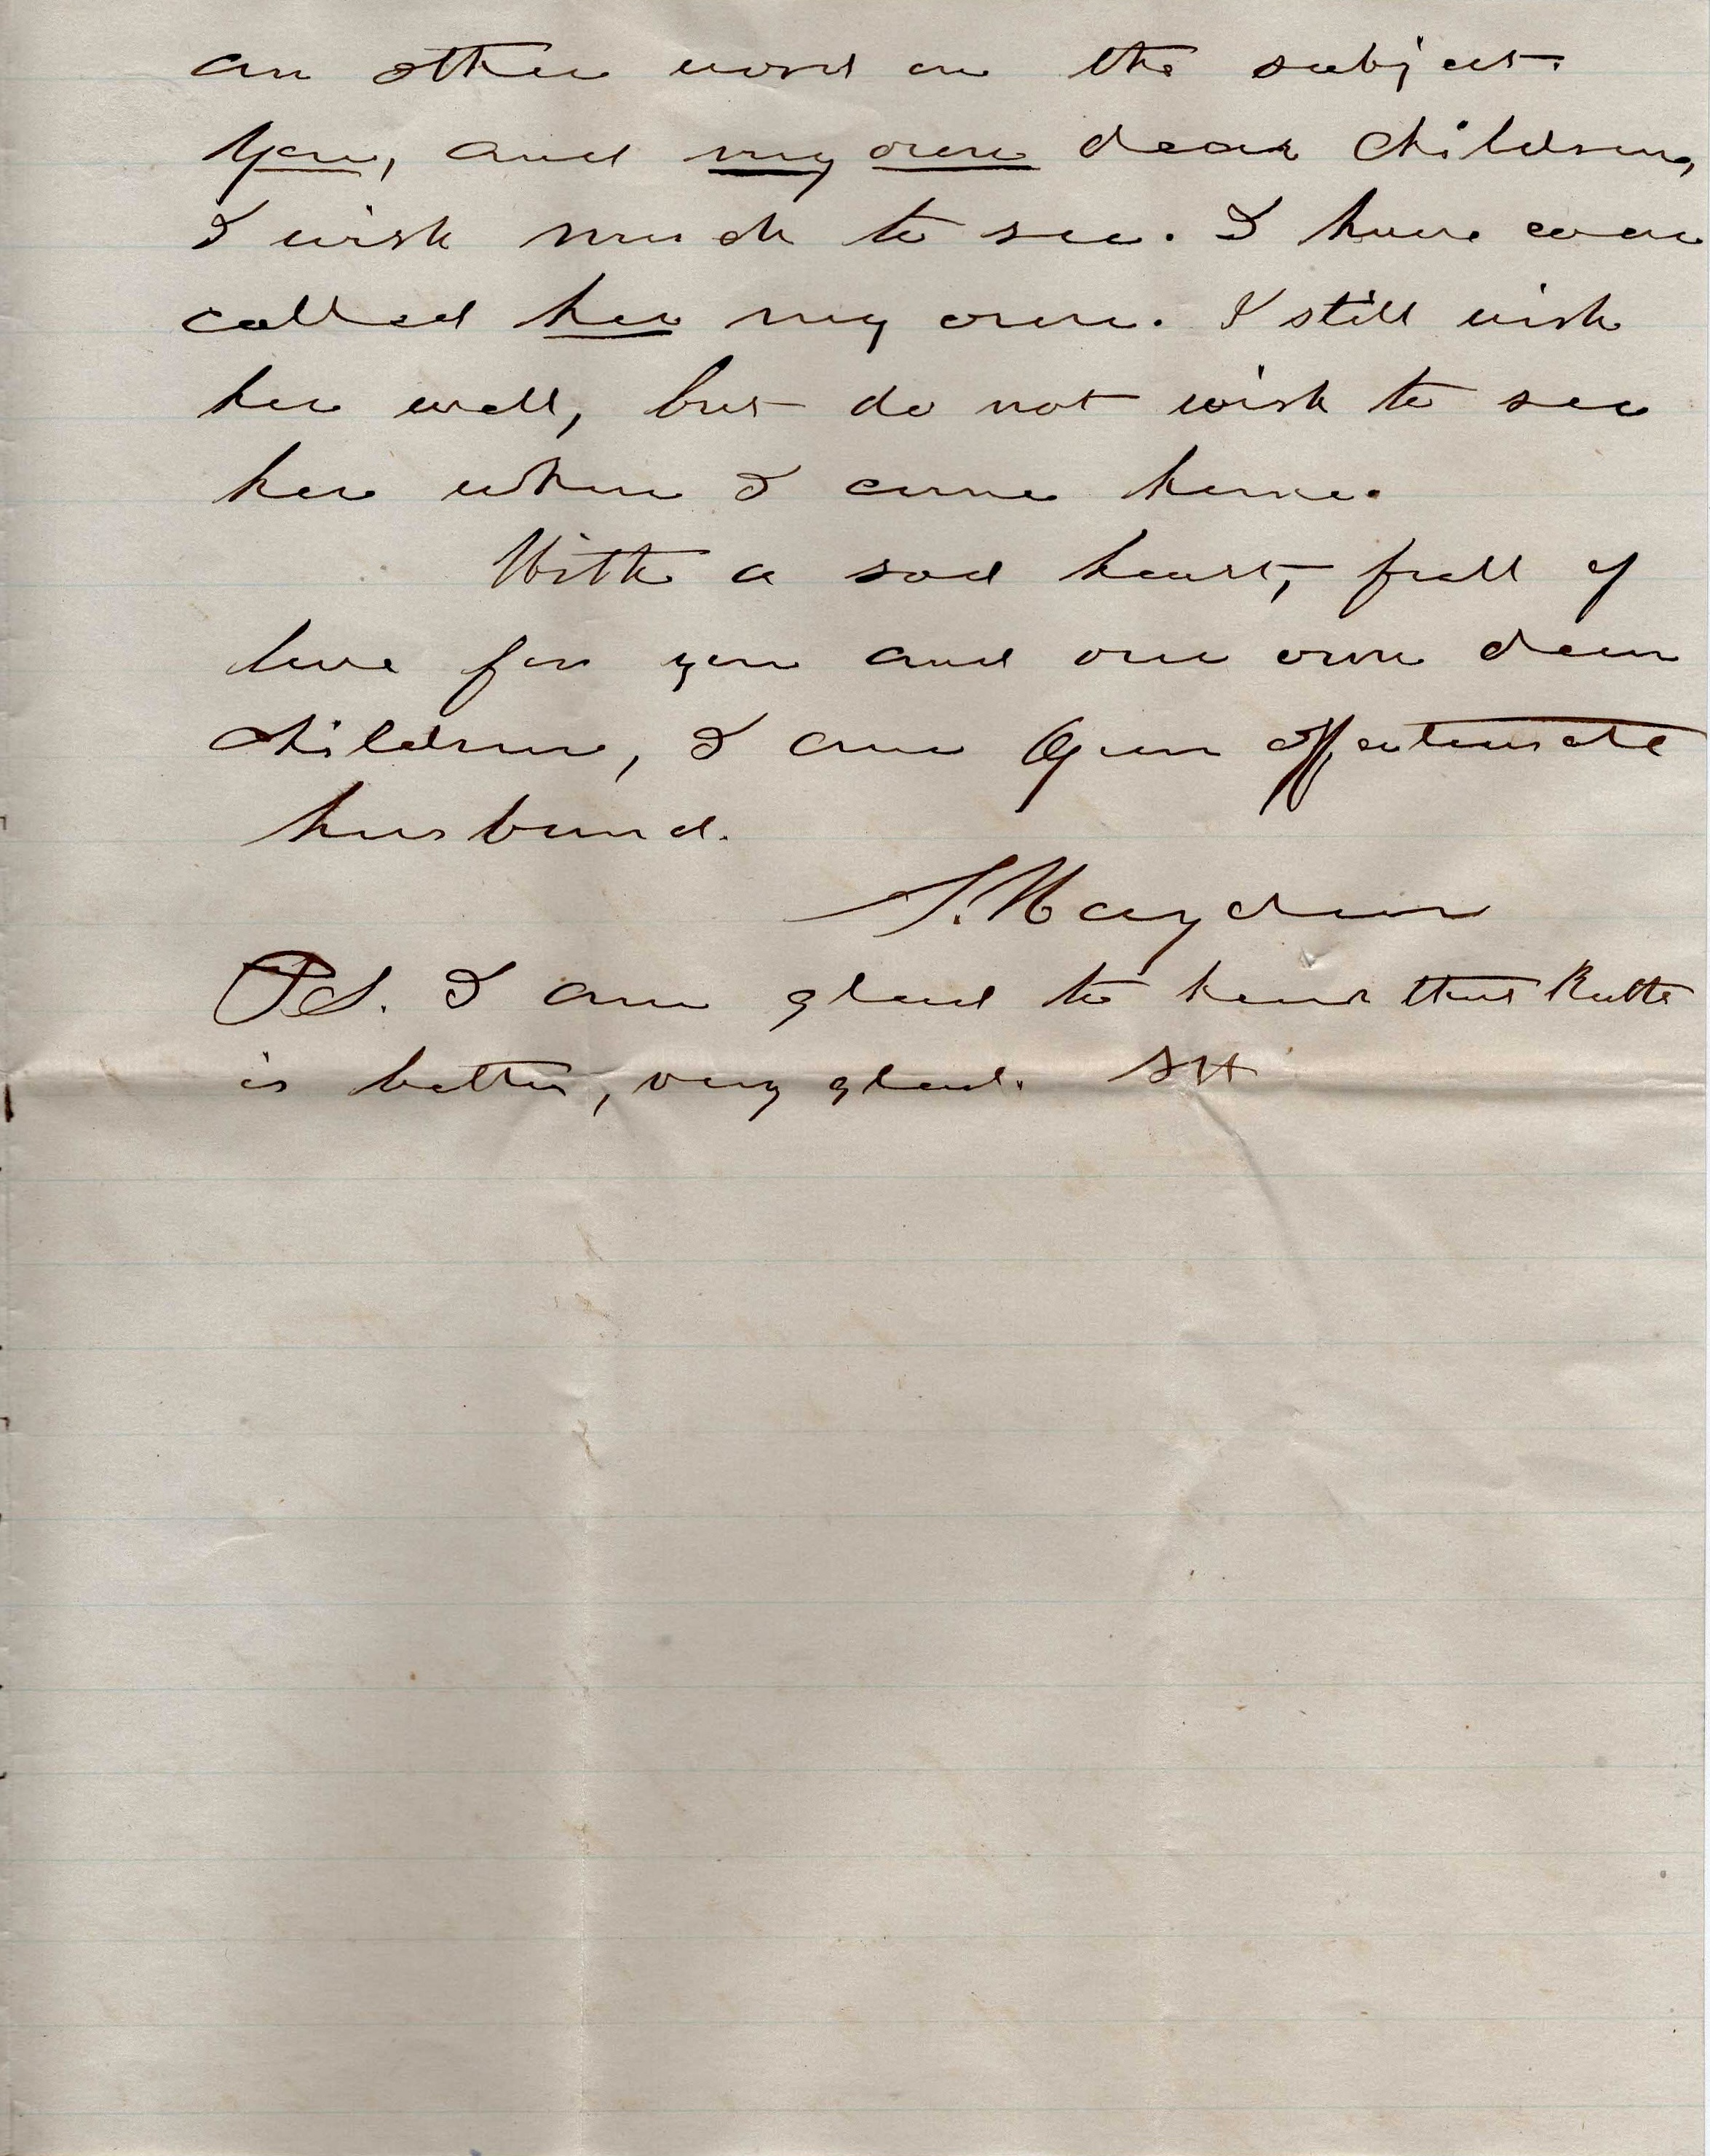 an other word on the subject.
You, and my own dear children,
I wish much to see. I have ever
called her my own. I still wish
her well, but do not wish to see
her when I come home.
With a sad heart, full of
love for you and our own dear
children, I am Your affectionate
husband.
S. Hayden
PS. I am glad to hear that
is better, very glad. SH